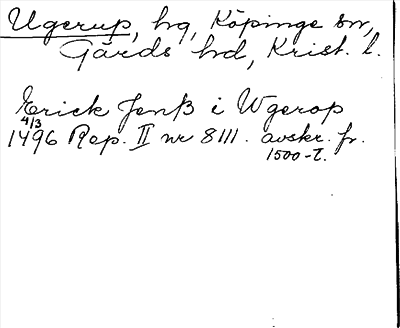 Ugerup, hg, Köpinge sn,
Gärds hd, Krist. l.
Erick Jenß i Wgerop
4/3
1496 Rep. II nr 8111. avskr. fr.
1500-t.